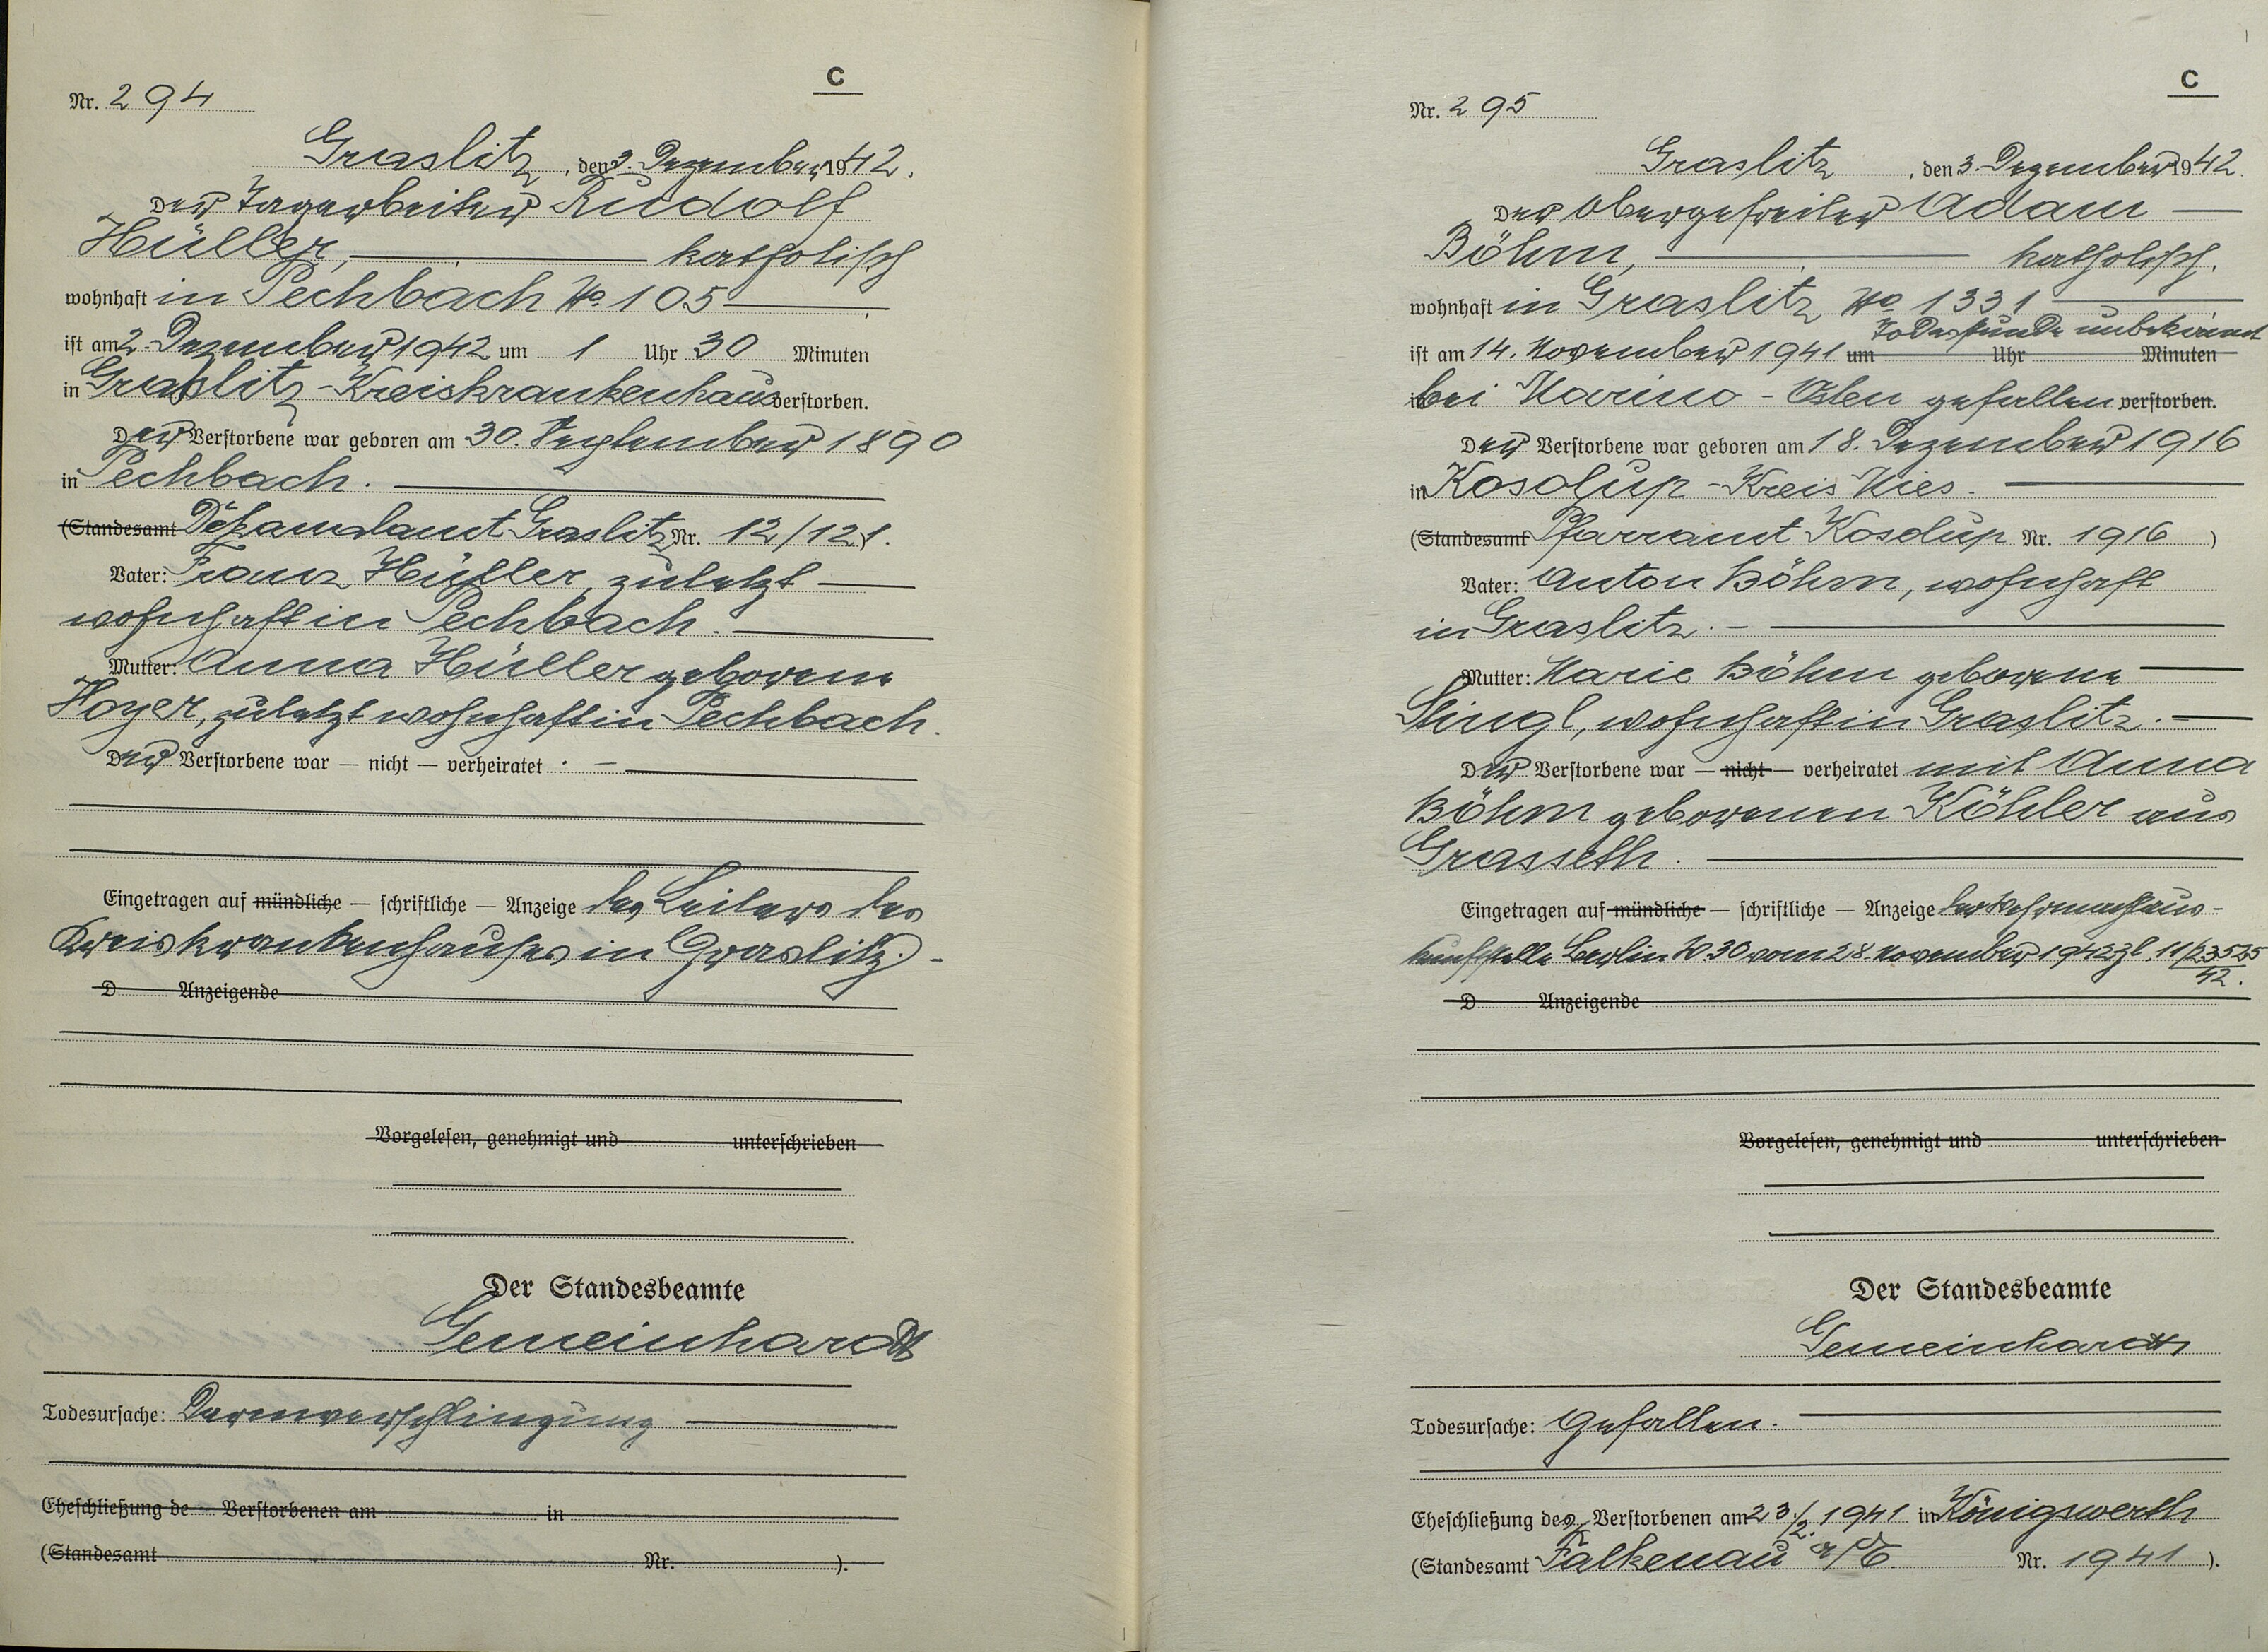 C
Nr. 294
Graslitz, den 3. Dezember 1942.
Der Tagarbeiter Rudolf
Hüller, katholisch
wohnhaft in Pechbach No. 105
ist am 2. Dezember 1942 um 1 Uhr 30 Minuten
in Graslitz - Kreiskrankenhaus verstorben.
Der Verstorbene war geboren am 30. September 1890
in Pechbach.
(Standesamt Dekanalamt Graslitz Nr. 12/121).
Vater: Franz Hüller, zuletzt
wohnhaft in Pechbach.
Mutter: Anna Hüller geborene
Hoyer, zuletzt wohnhaft in Pechbach.
Der Verstorbene war — nicht — verheiratet. -
Eingetragen auf mündliche — schriftliche — Anzeige des Leiters des
Kreiskrankenhauses in Graslitz. -
D Anzeigende
Vorgelesen, genehmigt und unterschrieben
Der Standesbeamte
Gemeinhardt
Todesursache: Darmverschlingung
Eheschließung de Verstorbenen am in
(Standesamt Nr. ).
C
Nr. 295
Graslitz, den 3. Dezember 1942.
Der Obergefreiter Adam
Böhm, katholisch.
wohnhaft in Graslitz No 1331
Todesstunde unbekannt
ist am 14. November 1941 um Uhr Minuten
in bei - Osten gefallen verstorben.
Der Verstorbene war geboren am 18. Dezember 1916
in Kosolup - Kreis Mies.
(Standesamt Pfarramt Kosolup Nr. 1916 )
Vater: Anton Böhm, wohnhaft
in Graslitz. -
Mutter: Marie Böhm geborene
Stingl, wohnhaft in Graslitz. -
Der Verstorbene war — nicht — verheiratet mit Anna
Böhm geborenen Köhler aus
Grasseth.
Eingetragen auf mündliche — schriftliche — Anzeige der Wehrmachtaus-
kunftstelle Berlin W. 30 vom 28. November 1942 Zl. 11/23525
42.
D Anzeigende
Vorgelesen, genehmigt und unterschrieben
Der Standesbeamte
Gemeinhardt
Todesursache: Gefallen.
Eheschließung des Verstorbenen am 23./2. 1941 in Königswerth
(Standesamt Falkenau a/E Nr. 1941 ).